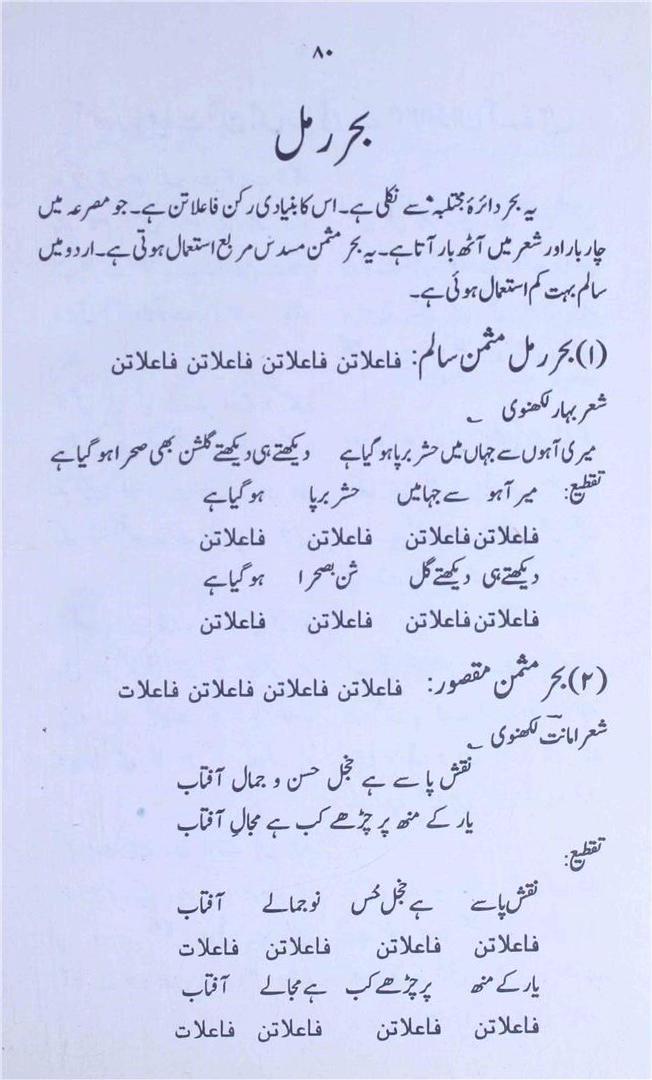 ۸۰
بحر رمل
یہ بحر دائرۂ مجتلبہ سے نکلی ہے۔ اس کا بنیادی رکن فاعلاتن ہے۔ جو مصرعہ میں
چار بار اور شعر میں آٹھ بار آتا ہے۔ یہ بحر مثمن مسدس مربع استعمال ہوتی ہے۔ اردو میں
سالم بہت کم استعمال ہوئی ہے۔
(۱) بحر رمل مثمن سالم: فاعلاتن فاعلاتن فاعلاتن فاعلاتن
شعر بہار لکھنوی ؎
میری آہوں سے جہاں میں حشر برپا ہو گیا ہے دیکھتے ہی دیکھتے گلشن بھی صحرا ہو گیا ہے
تقطیع: میر آہو سے جہامیں حشر برپا ہو گیا ہے
فاعلاتن فاعلاتن فاعلاتن فاعلاتن
دیکھتے ہی دیکھتے گل شن بصحرا ہو گیا ہے
فاعلاتن فاعلاتن فاعلاتن فاعلاتن
(۲) بحر مثمن مقصور: فاعلاتن فاعلاتن فاعلاتن فاعلات
شعر امانتؔ لکھنوی ؎
نقش پا سے ہے خجل حسن و جمال آفتاب
یار کے منھ پر چڑھے کب ہے مجالِ آفتاب
تقطیع:
نقش پاسے ہے خجل حُس نو جمالے آفتاب
فاعلاتن فاعلاتن فاعلاتن فاعلات
یار کے منھ پر چڑھے کب ہے مجالے آفتاب
فاعلاتن فاعلاتن فاعلاتن فاعلات